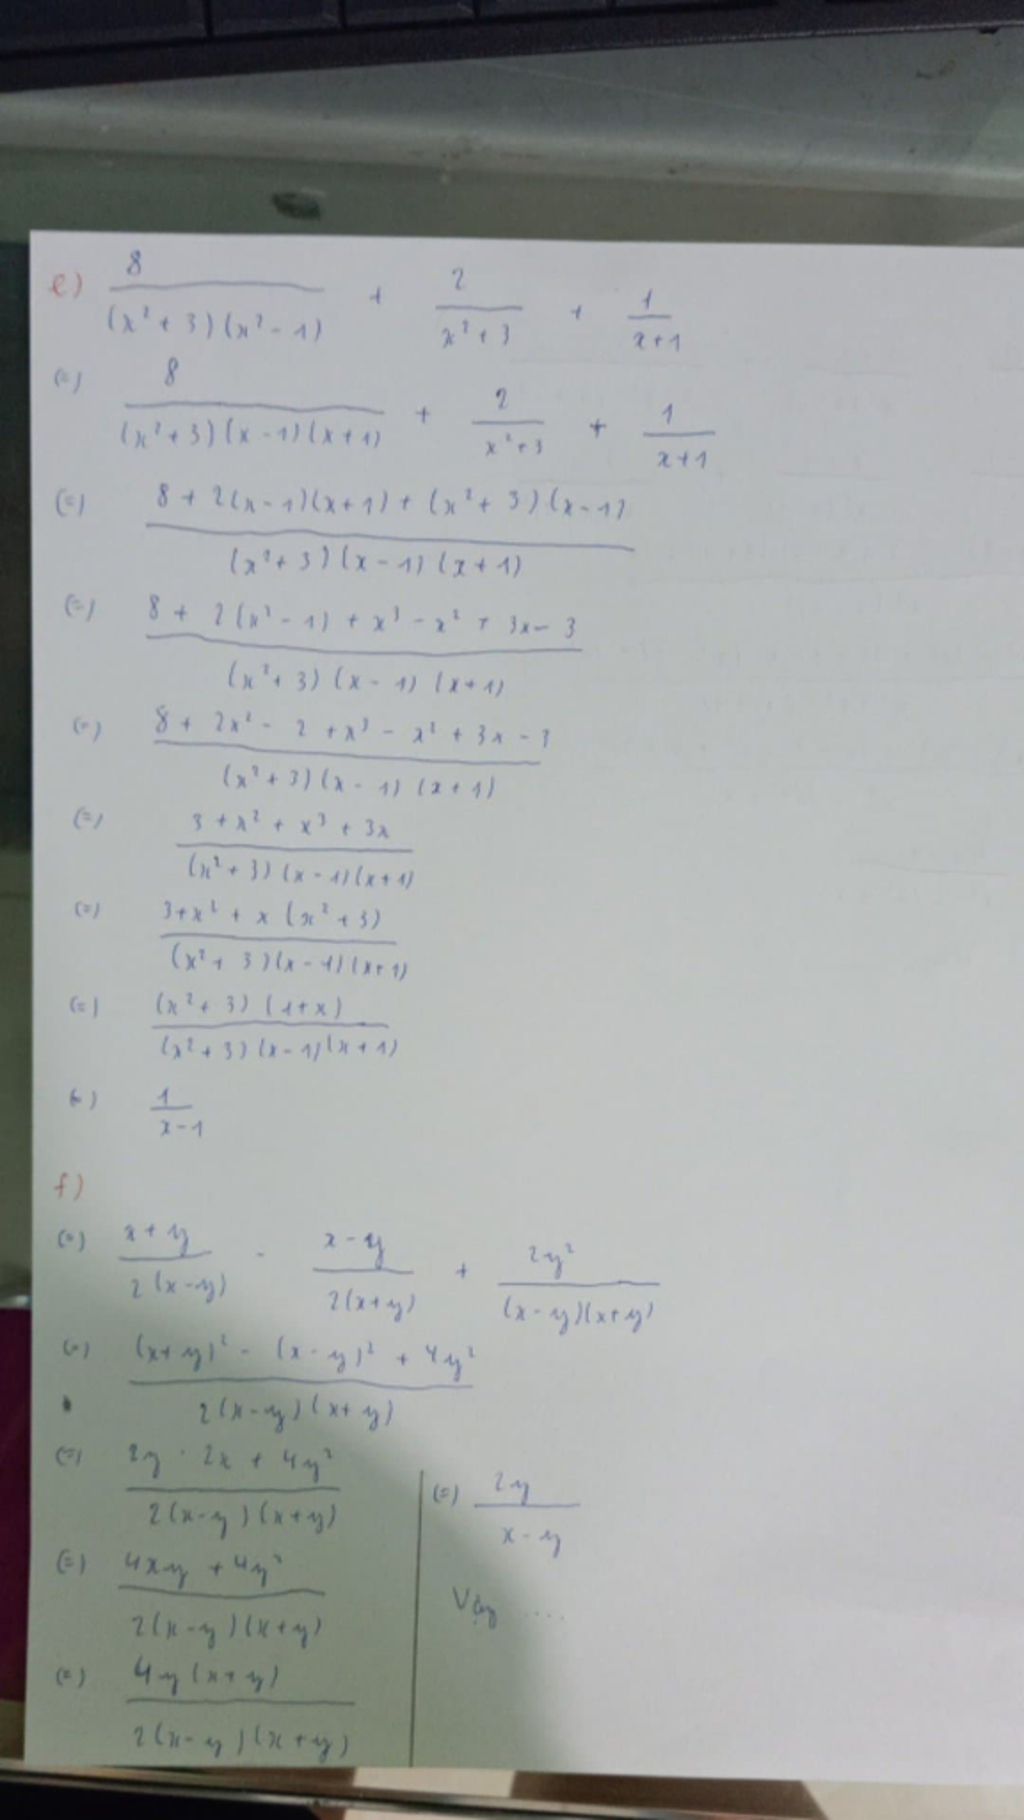 e) 8/((x²+3)(x²-1)) + 2/(x²+3) + 1/(x+1)
(=) 8/((x²+3)(x-1)(x+1)) + 2/(x²+3) + 1/(x+1)
(=) (8+2(x-1)(x+1)+(x²+3)(x-1))/((x²+3)(x-1)(x+1))
(=) (8+2(x²-1)+x³-x²+3x-3)/((x²+3)(x-1)(x+1))
(=) (8+2x²-2+x³-x²+3x-3)/((x²+3)(x-1)(x+1))
(=) (3+x²+x³+3x)/((x²+3)(x-1)(x+1))
(=) (3+x²+x(x²+3))/((x²+3)(x-1)(x+1))
(=) ((x²+3)(1+x))/((x²+3)(x-1)(x+1))
(=) 1/(x-1)
f)
(=) (x+y)/(2(x-y)) - (x-y)/(2(x+y)) + 2y²/((x-y)(x+y))
(=) ((x+y)²-(x-y)²+4y²)/(2(x-y)(x+y))
(=) (2y·2x+4y²)/(2(x-y)(x+y))
(=) (4xy+4y²)/(2(x-y)(x+y))
(=) (4y(x+y))/(2(x-y)(x+y))
(=) 2y/(x-y)
Vậy ....